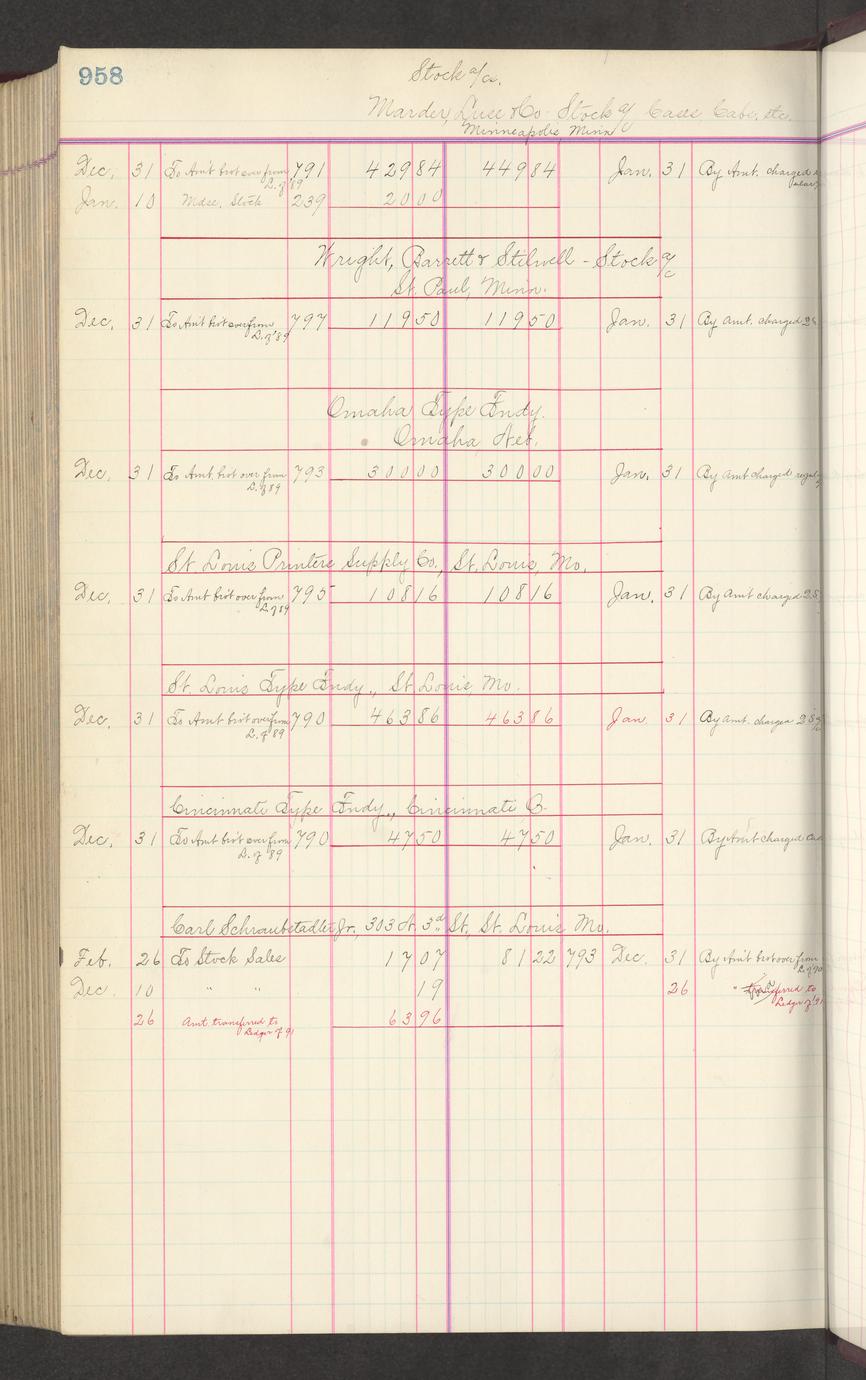 958
Stock a/cs.
Marder, Luse & Co - Stock a/c Cases, Cabs, etc.
Minneapolis Minn
Dec. 31 To Am't bro't over from L. of '89 791 429 84 449 84 Jan. 31 By Amt. charged
Jan. 10 Mdse. Stock 239 20 00
Wright, Barrett & Stilwell - Stock a/c
St. Paul, Minn.
Dec. 31 To Am't bro't over from L. of '89 797 119 50 119 50 Jan. 31 By Amt. charged
Omaha Type Fndy.
Omaha Neb.
Dec. 31 To Amt. bro't over from L. of 89 793 300 00 300 00 Jan. 31 By Amt charged
St. Louis Printers Supply Co., St. Louis, Mo.
Dec. 31 To Amt bro't over from L. of 89 795 108 16 108 16 Jan. 31 By Am't charged
St. Louis Type Fndy., St. Louis, Mo.
Dec. 31 To Amt bro't over from L. of '89 790 463 86 463 86 Jan 31 By Amt. charged
Cincinnati Type Fndy., Cincinnati O.
Dec. 31 To Amt bro't over from L. of '89 790 47 50 47 50 Jan. 31 By Am't charged
Carl Schraubstadter Jr., 303 N. 3d St, St. Louis Mo.
Feb. 26 To Stock Sales 17 07 81 22 793 Dec. 31 By Am't bro't over from L. of '90
Dec. 10 " " 19 26 " transferred to Ledger of '91
26 Amt transferred to Ledger of 91 63 96